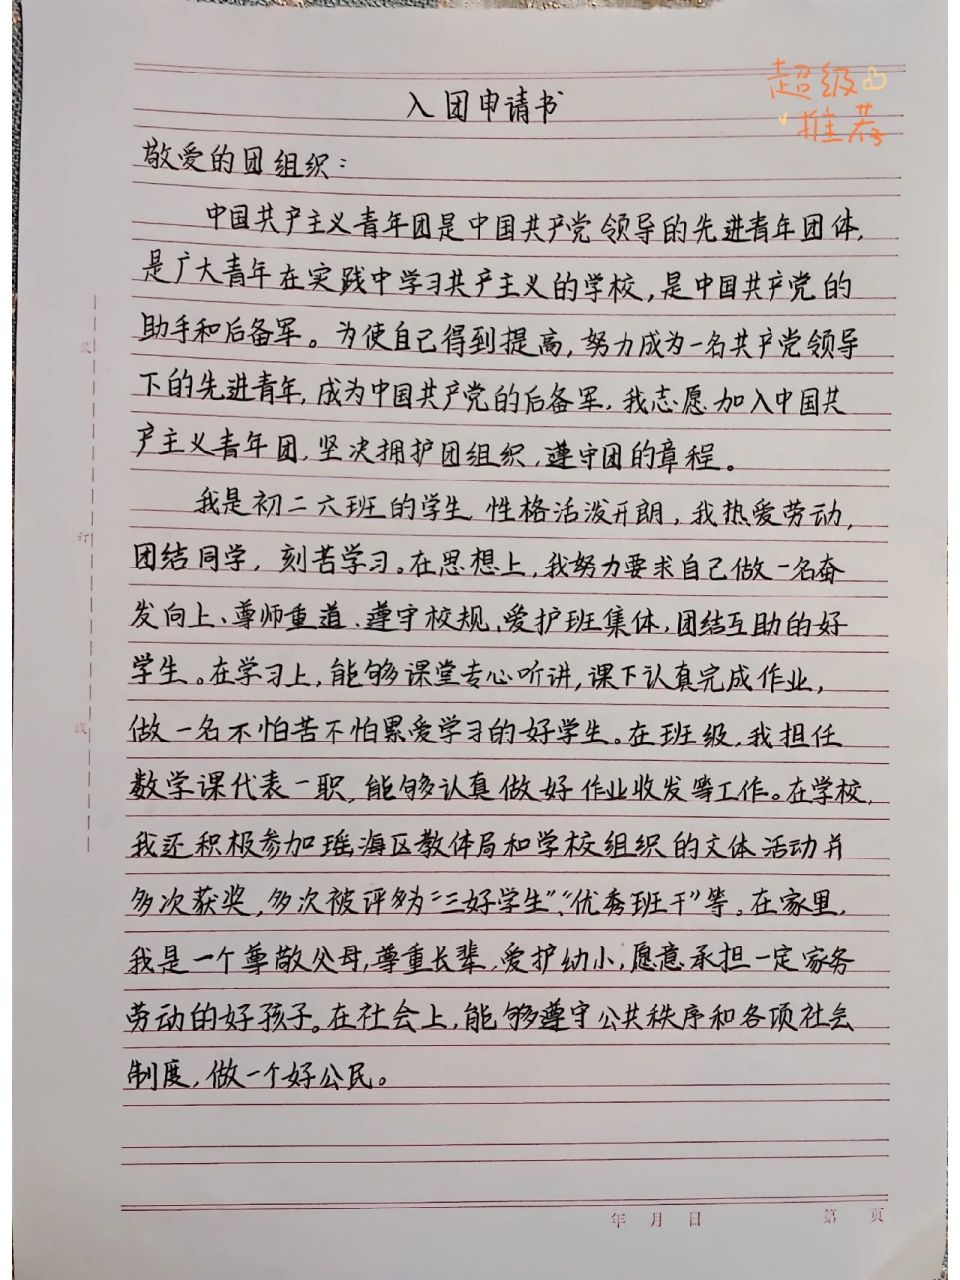 超级
推荐
入团申请书
敬爱的团组织：
中国共产主义青年团是中国共产党领导的先进青年团体，
是广大青年在实践中学习共产主义的学校，是中国共产党的
助手和后备军。为使自己得到提高，努力成为一名共产党领导
下的先进青年，成为中国共产党的后备军，我志愿加入中国共
产主义青年团，坚决拥护团组织，遵守团的章程。
我是初二六班的学生 性格活泼开朗，我热爱劳动，
团结同学，刻苦学习。在思想上，我努力要求自己做一名奋
发向上、尊师重道、遵守校规、爱护班集体，团结互助的好
学生。在学习上，能够课堂专心听讲，课下认真完成作业，
做一名不怕苦不怕累爱学习的好学生。在班级，我担任
数学课代表一职，能够认真做好作业收发等工作。在学校，
我还积极参加瑶海区教体局和学校组织的文体活动并
多次获奖，多次被评为“三好学生”、“优秀班干”等。在家里，
我是一个尊敬父母，尊重长辈，爱护幼小，愿意承担一定家务
劳动的好孩子。在社会上，能够遵守公共秩序和各项社会
制度，做一个好公民。
装
订
线
年 月 日
第 页